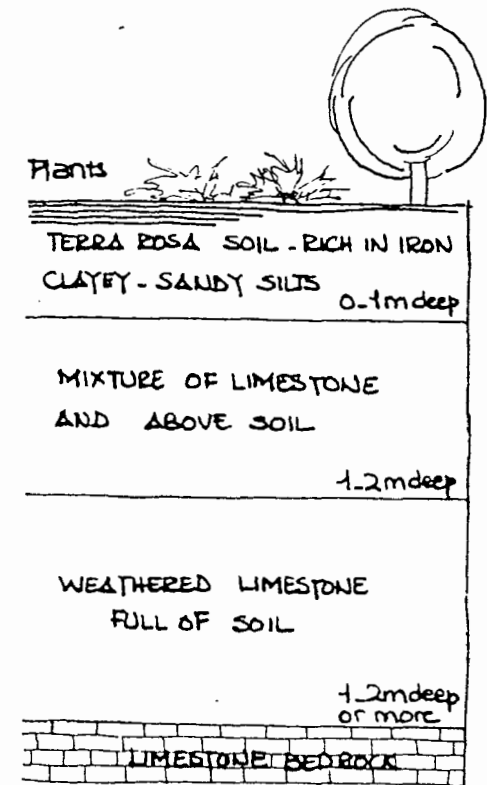 Plants
TERRA ROSA SOIL - RICH IN IRON
CLAYEY - SANDY SILTS
0-1m deep
MIXTURE OF LIMESTONE
AND ABOVE SOIL
1-2m deep
WEATHERED LIMESTONE
FULL OF SOIL
1-2m deep
or more
LIMESTONE BEDROCK